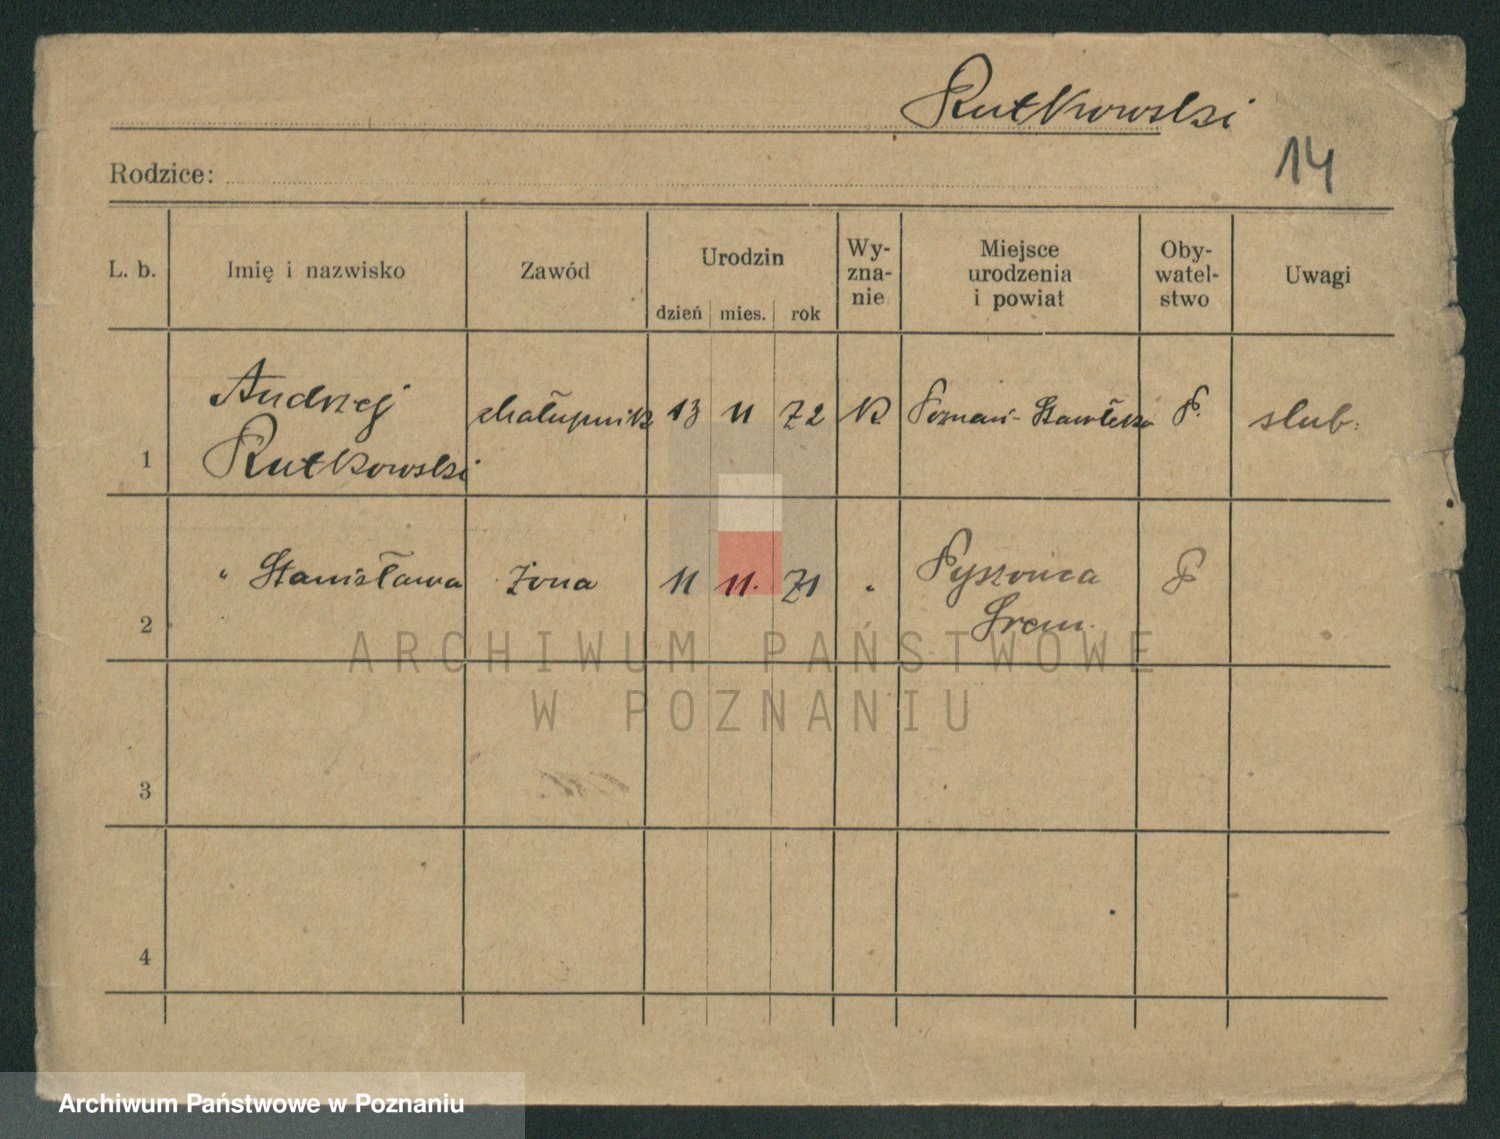 Rutkowski
14
Rodzice:
L. b.
Imię i nazwisko
Zawód
Urodzin
dzień
mies.
rok
Wy-
zna-
nie
Miejsce
urodzenia
i powiat
Oby-
watel-
stwo
Uwagi
1
Andrzej
Rutkowski
chałupnik
13
11
72
K
Poznań-
P.
slub.
2
" Stanisława
żona
11
11.
71
"
Pyszonca
Srem.
P
3
4
ARCHIWUM PAŃSTWOWE
W POZNANIU
Archiwum Państwowe w Poznaniu